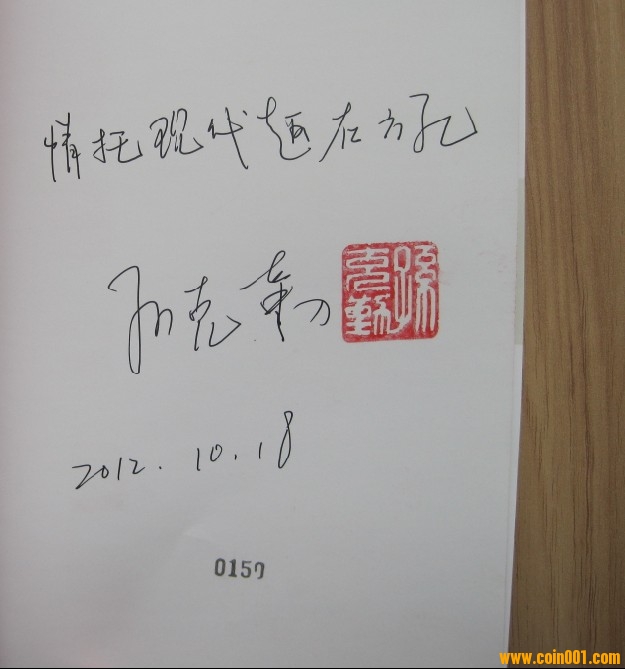 情托现代趣在方孔
孙克勤
孫克勤
2012.10.18
0150
www.coin001.com